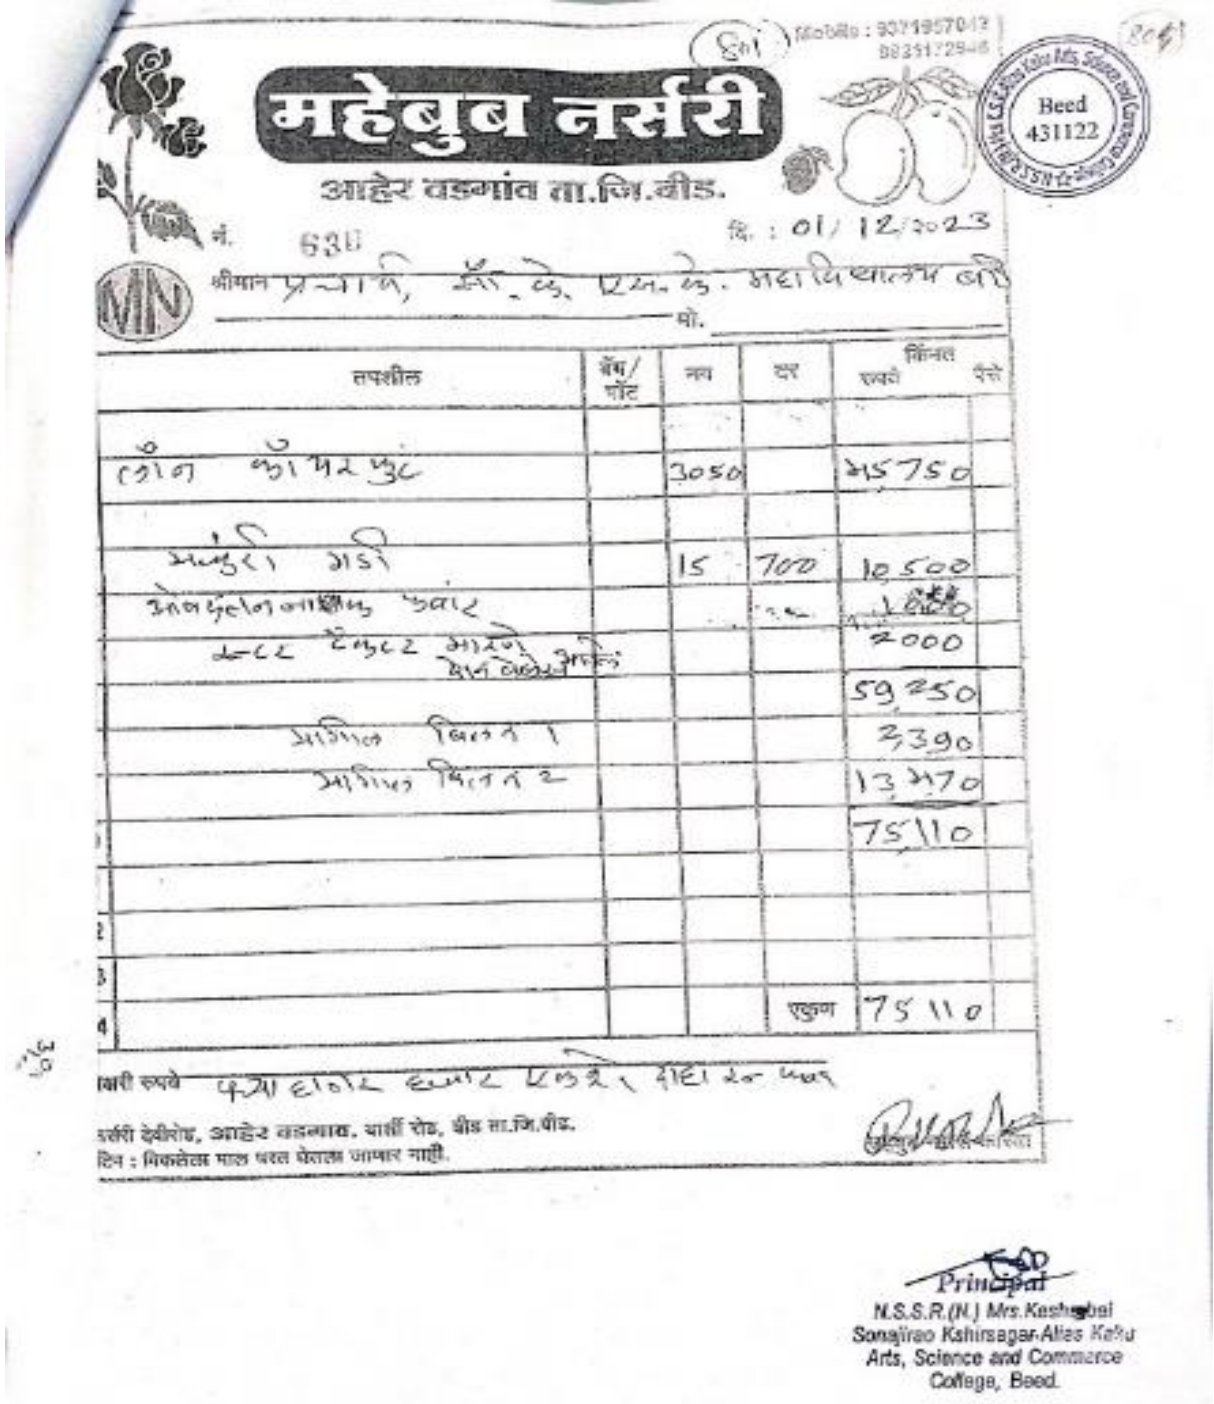 801
Mobile : 9371957047
9823172946
804
Beed
431122
महेबुब नर्सरी
आहेर वडगांव ता.जि.बीड.
नं. 636
दि. : 01/12/2023
MN
श्रीमान प्राचार्य, सौ. के. एस. के. महाविद्यालय बीड
मो.
तपशील बॅग/पॉट नग दर किंमत रुपये पैसे
लॉन 3050 45750
मजुरी गडी 15 700 10,500
1000
टँकर 2000
59,250
मागिल बिल नं 1 2,390
मागिल बिल नं 2 13,470
75,110
2
3
4 एकुण 75110
अक्षरी रुपये पंच्याहत्तर हजार एकशे दहा रु फक्त
नर्सरी देवीरोड, आहेर वडगाव, बार्शी रोड, बीड ता.जि.बीड.
टिप : विकलेला माल परत घेतला जाणार नाही.
Principal
N.S.S.R.(N.) Mrs.Kesharbai
Sonajirao Kshirsagar Alias Kaku
Arts, Science and Commerce
College, Beed.